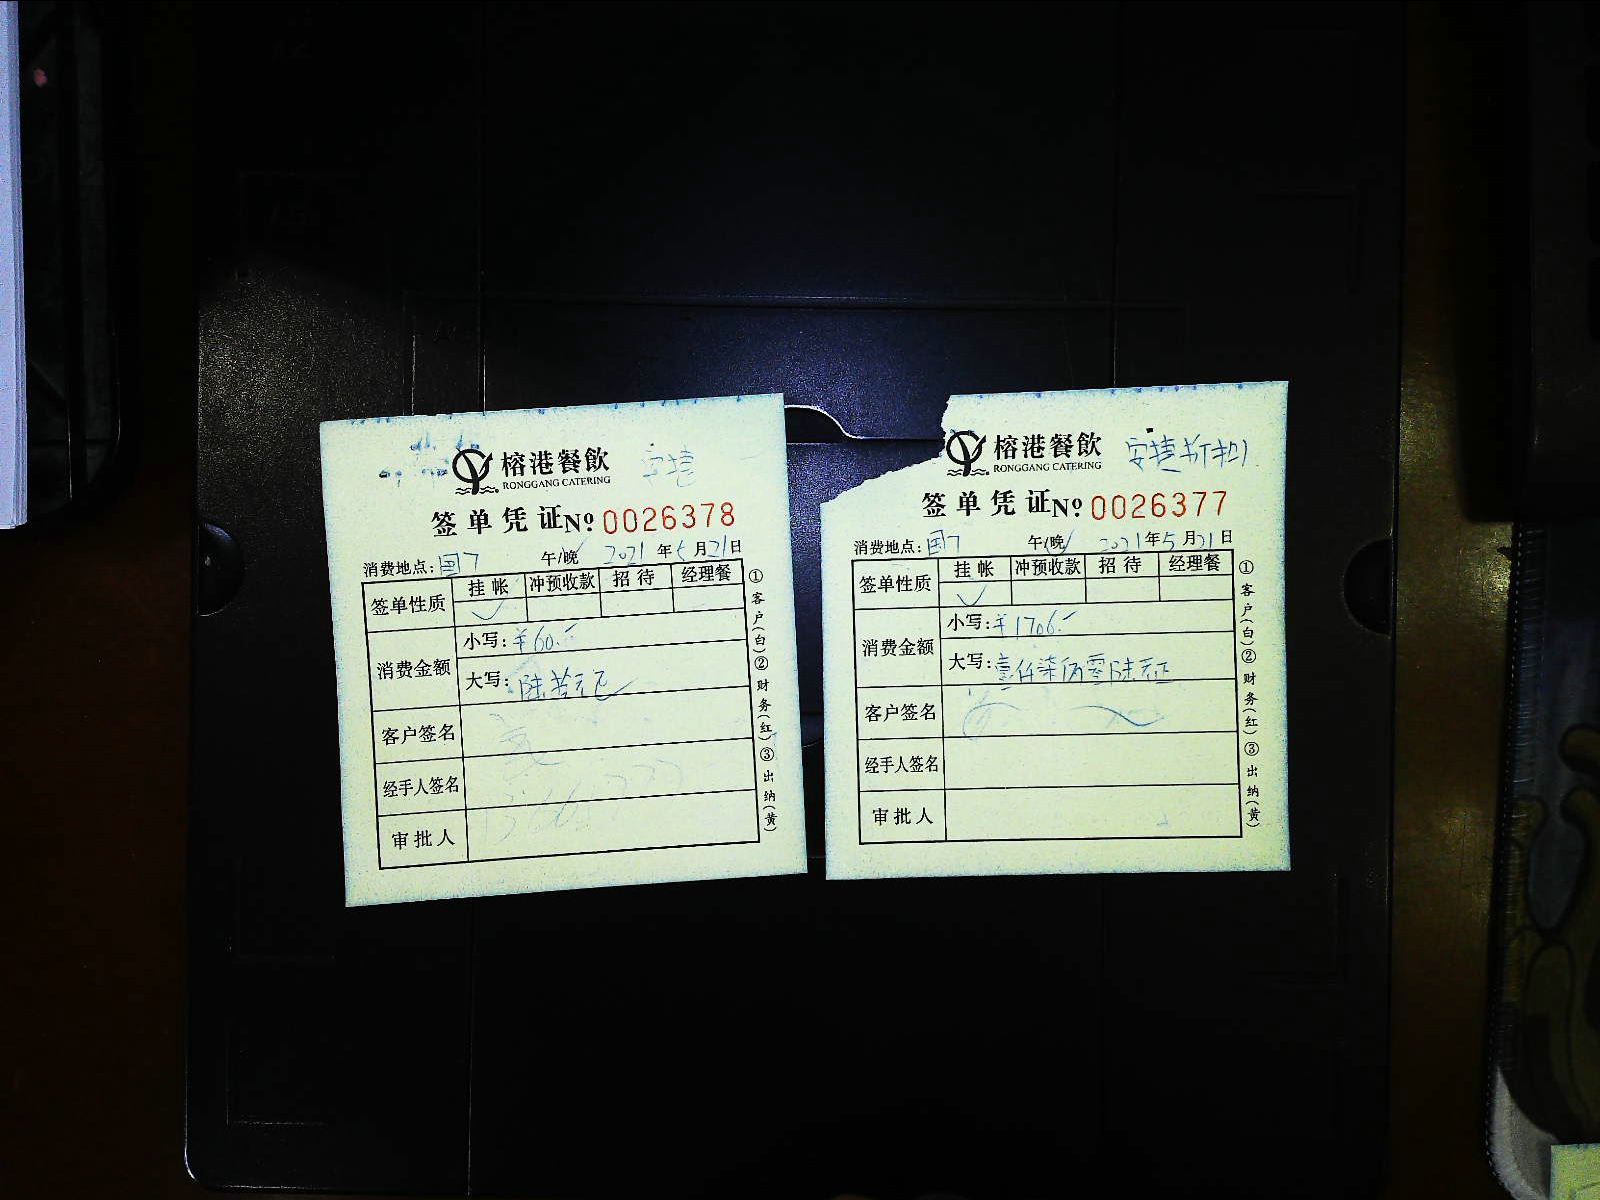 榕港餐飲
RONGGANG CATERING
安捷
签单凭证№ 0026378
消费地点: 国7 午/晚 2021年5月21日
签单性质 挂帐 冲预收款 招待 经理餐
✓
消费金额
小写: ¥60.-
大写: 陆拾元正
客户签名
经手人签名
审批人
①客户(白)②财务(红)③出纳(黄)
榕港餐飲
RONGGANG CATERING
安捷折扣
签单凭证№ 0026377
消费地点: 国7 午/晚 2021年5月21日
签单性质 挂帐 冲预收款 招待 经理餐
✓
消费金额
小写: ¥1706.-
大写: 壹仟柒佰零陆元正
客户签名
经手人签名
审批人
①客户(白)②财务(红)③出纳(黄)